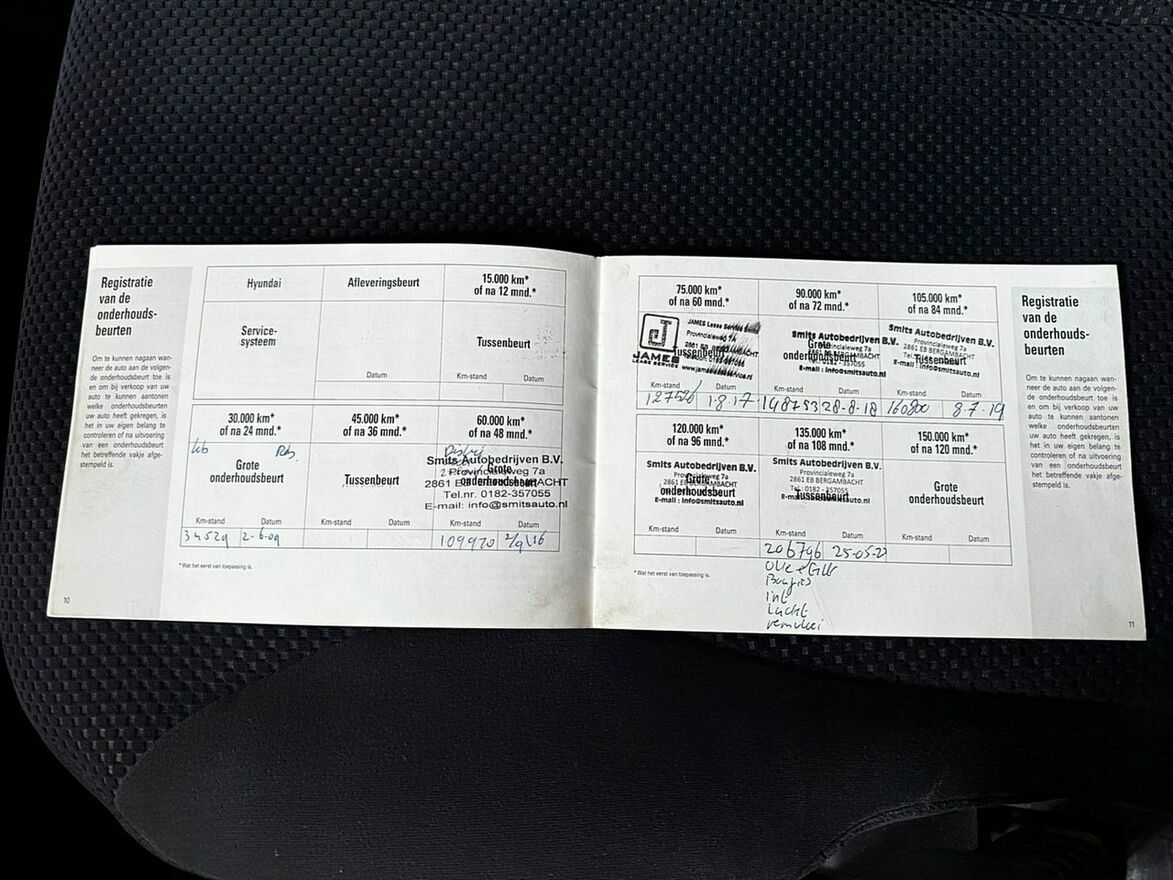 Registratie
van de
onderhouds-
beurten
Om te kunnen nagaan wan-
neer de auto aan de volgen-
de onderhoudsbeurt toe is
en om bij verkoop van uw
auto te kunnen aantonen
welke onderhoudsbeurten
uw auto heeft gekregen, is
het in uw eigen belang te
controleren of na uitvoering
van een onderhoudsbeurt
het betreffende vakje afge-
stempeld is.
10
Hyundai
Service-
systeem
Afleveringsbeurt
Datum
15.000 km*
of na 12 mnd.*
Tussenbeurt
Km-stand Datum
30.000 km*
of na 24 mnd.*
Grote
onderhoudsbeurt
Km-stand Datum
34529 2-6-09
45.000 km*
of na 36 mnd.*
Tussenbeurt
Km-stand Datum
60.000 km*
of na 48 mnd.*
Grote
onderhoudsbeurt
Smits Autobedrijven B.V.
Provincialeweg 7a
2861 EB BERGAMBACHT
Tel.nr. 0182-357055
E-mail: info@smitsauto.nl
Km-stand Datum
109970 2/9/16
*Wat het eerst van toepassing is.
75.000 km*
of na 60 mnd.*
Tussenbeurt
JAMES
LEASE SERVICE
JAMES Lease Service
Provincialeweg 7a
Km-stand Datum
127526 1-8-17
90.000 km*
of na 72 mnd.*
Grote
onderhoudsbeurt
Smits Autobedrijven B.V.
Provincialeweg 7a
2861 EB BERGAMBACHT
Tel.: 0182 - 357055
E-mail : info@smitsauto.nl
Km-stand Datum
148753 28-8-18
105.000 km*
of na 84 mnd.*
Tussenbeurt
Smits Autobedrijven B.V.
Provincialeweg 7a
2861 EB BERGAMBACHT
E-mail : info@smitsauto.nl
Km-stand Datum
160800 8-7-19
120.000 km*
of na 96 mnd.*
Grote
onderhoudsbeurt
Smits Autobedrijven B.V.
Provincialeweg 7a
2861 EB BERGAMBACHT
E-mail : info@smitsauto.nl
Km-stand Datum
135.000 km*
of na 108 mnd.*
Tussenbeurt
Smits Autobedrijven B.V.
Provincialeweg 7a
2861 EB BERGAMBACHT
Tel.: 0182 - 357055
E-mail : info@smitsauto.nl
Km-stand Datum
206796 25-05-2
Bougies
Int
Lucht
150.000 km*
of na 120 mnd.*
Grote
onderhoudsbeurt
Km-stand Datum
*Wat het eerst van toepassing is.
Registratie
van de
onderhouds-
beurten
Om te kunnen nagaan wan-
neer de auto aan de volgen-
de onderhoudsbeurt toe is
en om bij verkoop van uw
auto te kunnen aantonen
welke onderhoudsbeurten
uw auto heeft gekregen, is
het in uw eigen belang te
controleren of na uitvoering
van een onderhoudsbeurt
het betreffende vakje afge-
stempeld is.
11